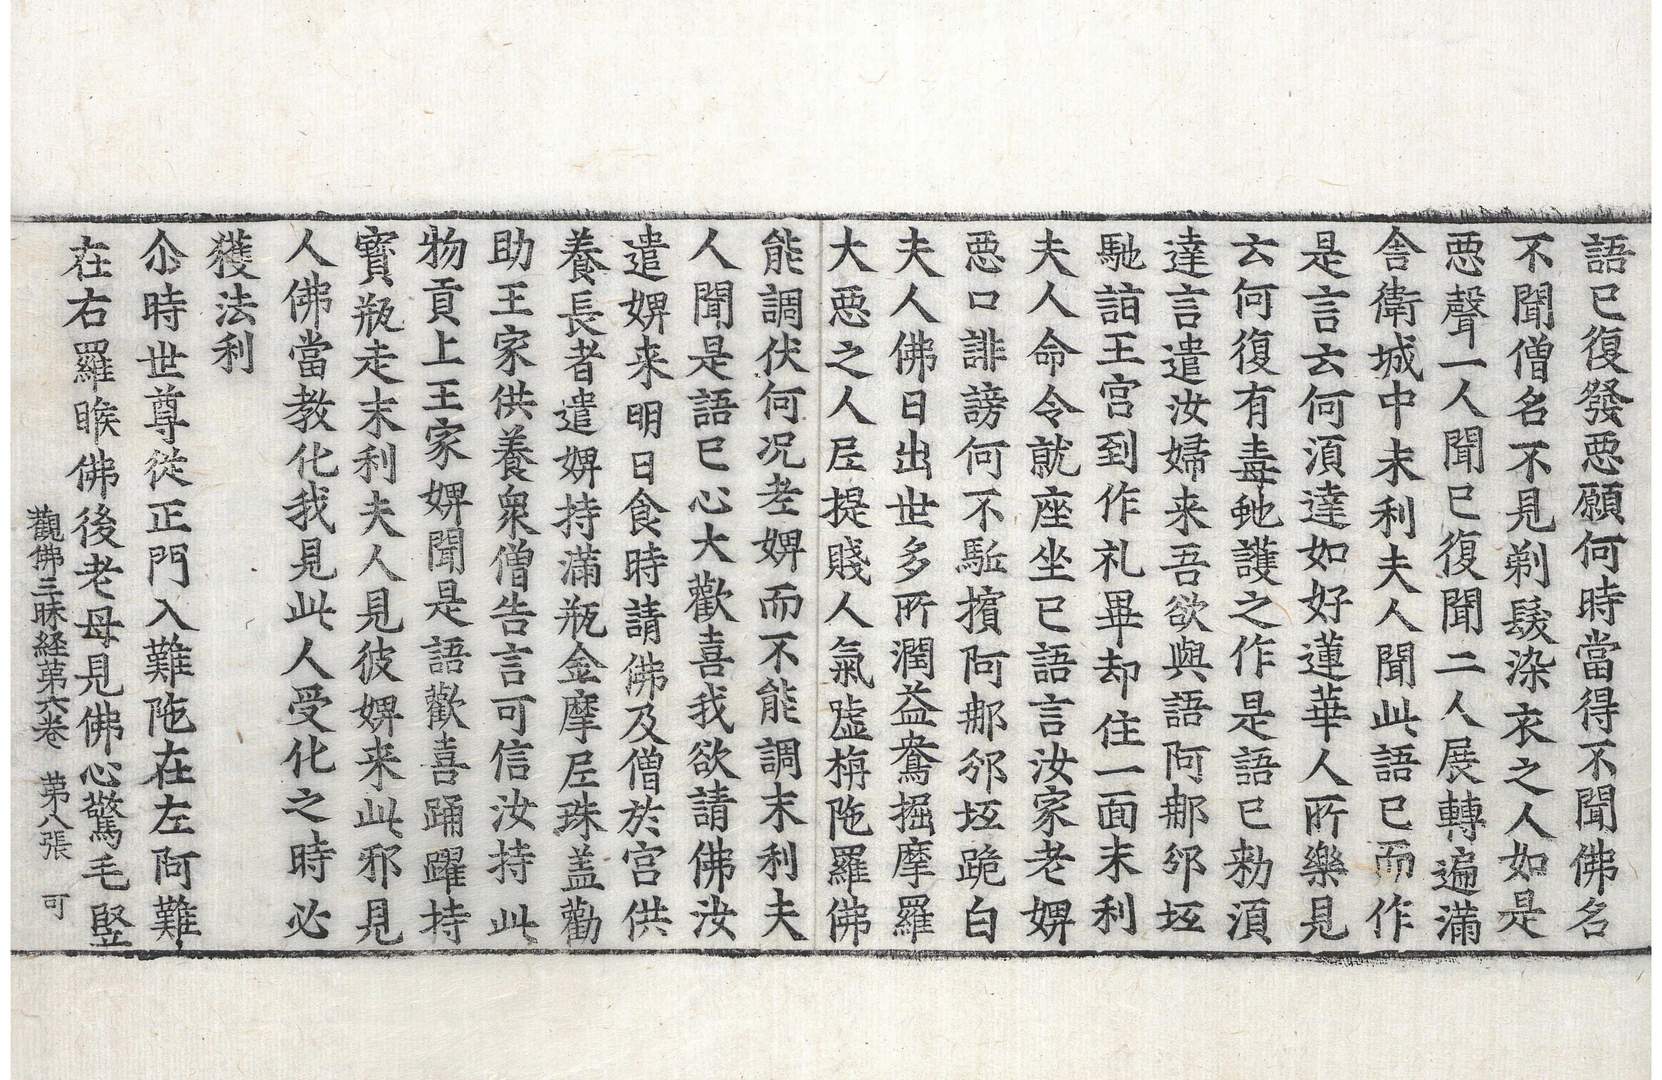 語已復發惡願何時當得不聞佛名
不聞僧名不見剃髮染衣之人如是
惡聲一人聞已復聞二人展轉遍滿
舎衛城中末利夫人聞此語已而作
是言云何湏達如好蓮華人所樂見
云何復有毒虵護之作是語已勑湏
達言遣汝婦来吾欲與語阿那邠坻
馳詣王宫到作礼畢却住一面末利
夫人命令就座坐已語言汝家老婢
惡口誹謗何不駈擯阿那邠坻跪白
夫人佛日出世多所潤益鴦掘摩羅
大惡之人尼提賤人氣嘘栴陁羅佛
能調伏何况老婢而不能調末利夫
人聞是語已心大歡喜我欲請佛汝
遣婢来明日食時請佛及僧於宫供
養長者遣婢持滿瓶金摩尼珠盖勸
助王家供養衆僧告言可信汝持此
物貢上王家婢聞是語歡喜踊躍持
寳瓶走末利夫人見彼婢来此邪見
人佛當教化我見此人受化之時必
獲法利
尒時世尊從正門入難陁在左阿難
在右羅睺佛後老母見佛心驚毛竪
觀佛三昧経苐六卷　苐八張　可